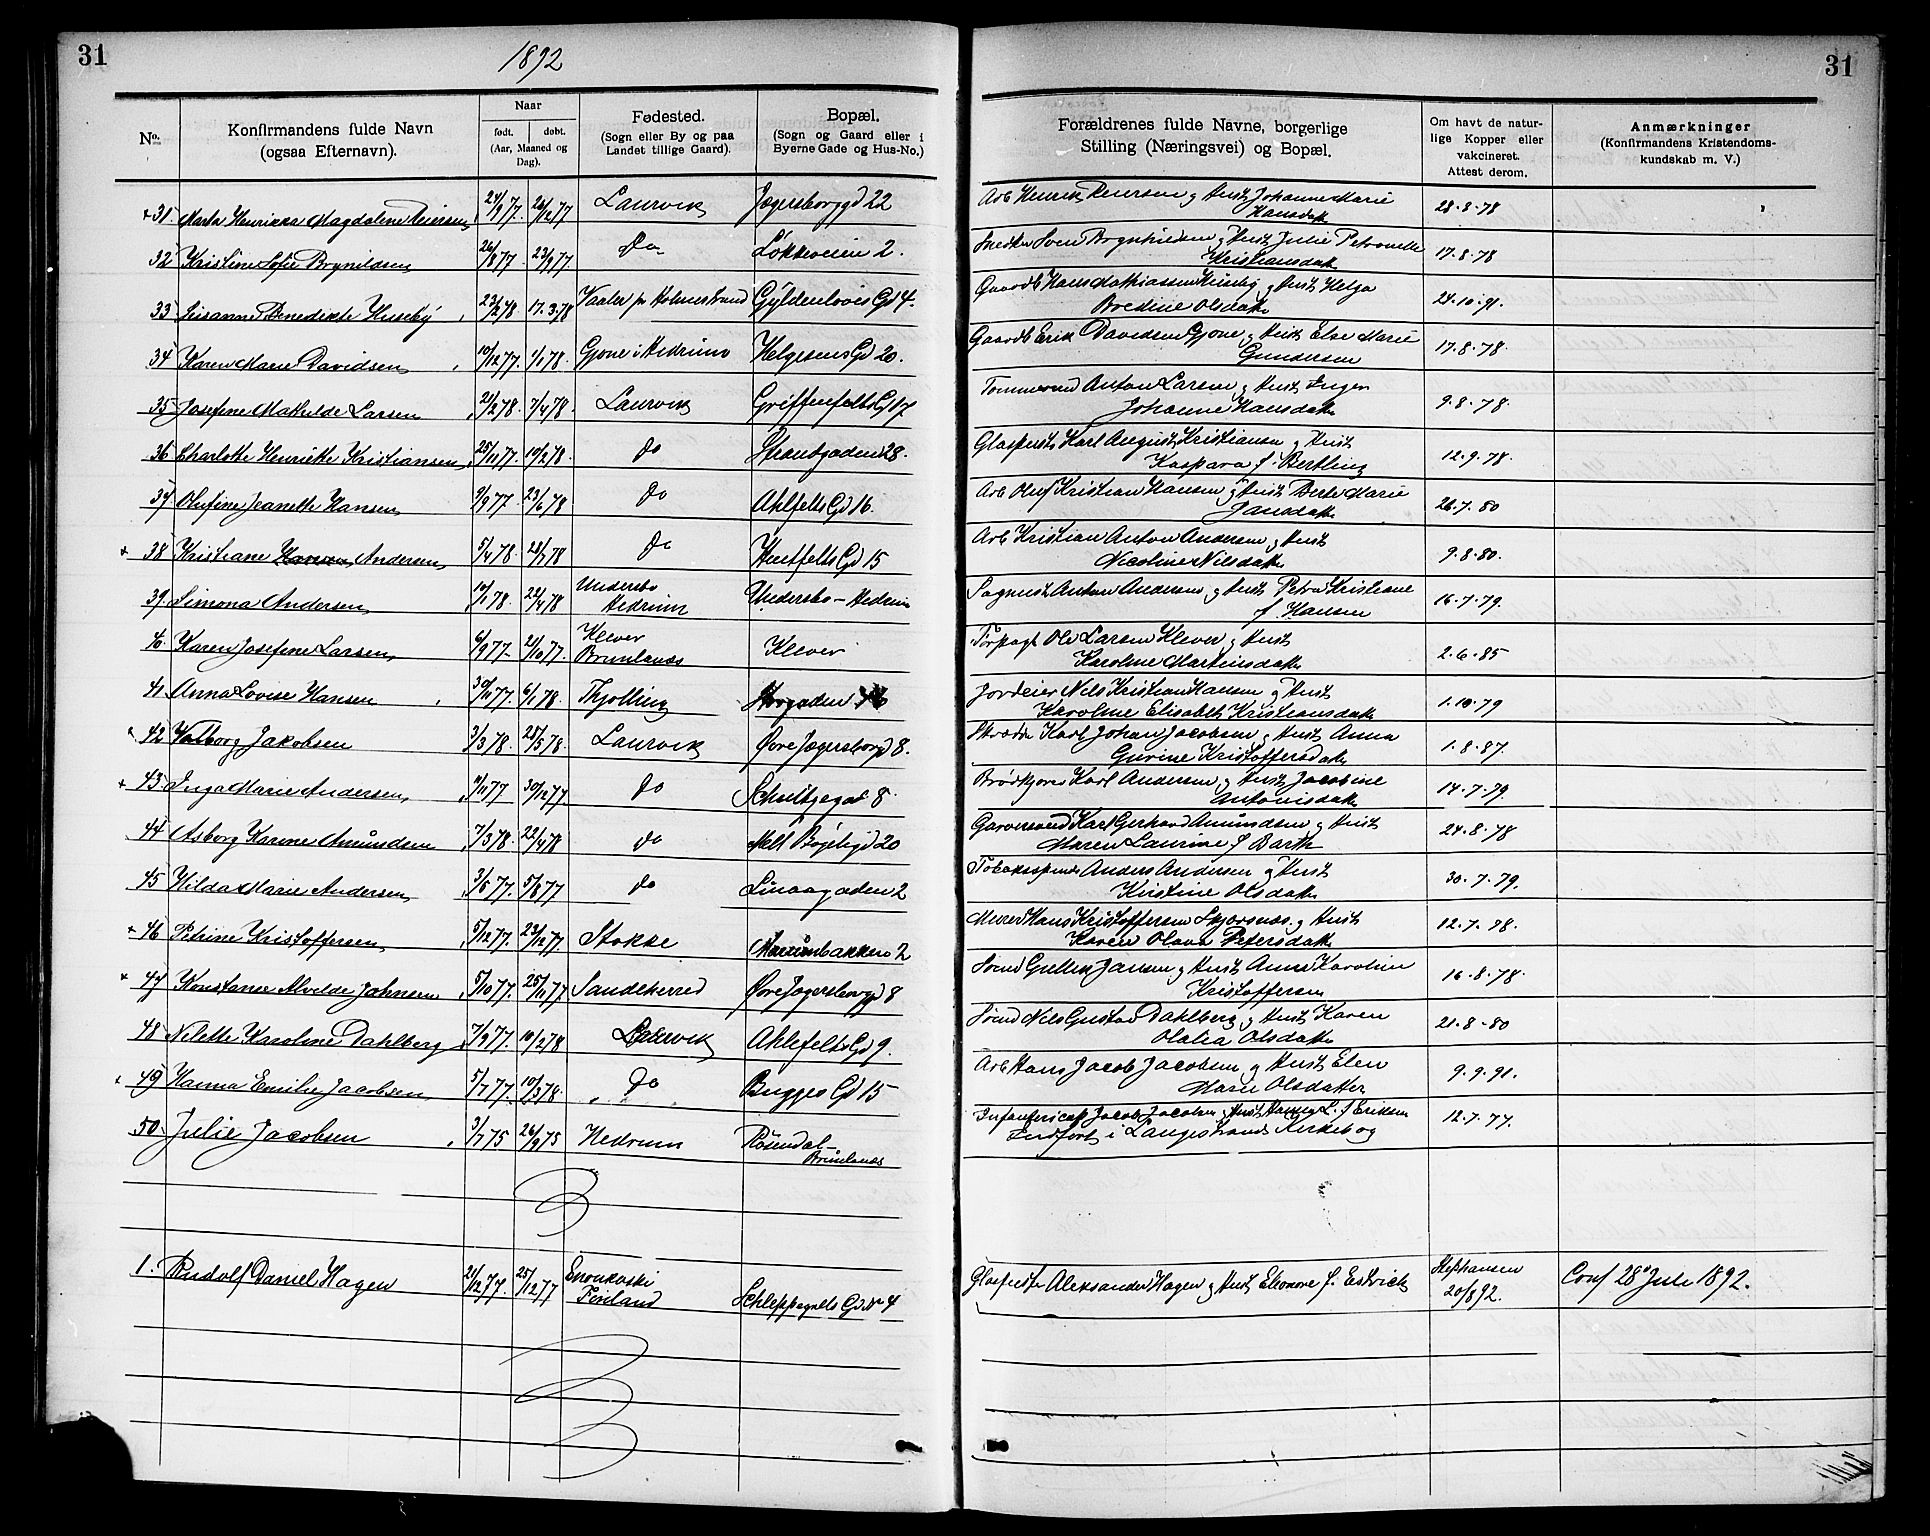 31
1892
31
No.
Konfirmandens fulde Navn
(ogsaa Efternavn).
Naar
født. døbt.
(Aar, Maaned og
Dag).
Fødested.
(Sogn eller By og paa
Landet tillige Gaard).
Bopæl.
(Sogn og Gaard eller i
Byerne Gade og Hus-No.)
Forældrenes fulde Navne, borgerlige
Stilling (Næringsvei) og Bopæl.
Om havt de natur-
lige Kopper eller
vakcineret.
Attest derom.
Anmærkninger
(Konfirmandens Kristendoms-
kundskab m. V.)
31. Marta Henrikka Magdalene 24/9 77. 26/12 77 Laurvik Jægersborggd 22 Arb Henrik & Hust Johanne Marie
Hansdatt 28-8-78
32 Kristine Sofie Brynildsen 26/8 77 23/9 77. Do Løkkeveien 2. Snedker Sven Brynildsen & Hust Julie Petronelle
Kristiansdatt 17.8.78
33 Susanne Benedikte Huseby 23/2 78 17.3.78 Vaaler pr Holmestrand Gyldenløves Gd 4. Gaardb Hans Mathiassen & Hust Helga
Bredine Olsdatt 24.10.91.
34 Karen Marie Davidsen 10/12 77. 1/1 78. Gjone i Hedrum Helgesens Gd 20. Gaardb Erik Davidsen Gjone & Hust Else Marie
Gundersen 17.8.78.
35 Josefine Mathilde Larsen 21/2 78. 7/4 78. Laurvik Griffenfelts Gd 17 Tømmermd Anton Larsen & Hust Inger
Johanne Hansdatt 9.8.78.
36 Charlotte Henriette Kristiansen 25/11 77. 10/2 78. do Strandgaden 28. Glaspuster Karl August Kristiansen & Hust
Kaspara f. Bertling 12.9.78.
37 Olufine Jeanette Hansen 9/9 77 23/6 78 do Ahlfelts Gd 16. Arb Oluf Kristian Hansen & Hust Berte Marie
Jansdatt 26.7.80
38 Kristiane Hansen Andersen 5/4 78. 28/7 78 do Huitfelts Gd 15 Arb Kristian Anton Andersen & Hust
Nicoline Nilsdatt 9.8.80.
39. Simona Andersen 10/1 78. 22/4 78 Undersbo
Hedrum Undersbo - Hedrum Sagmest Anton Andersen & Hust Petra Kristiane
f. Hansen 16.7.79.
40. Karen Josefine Larsen 6/9 77. 21/10 77. Klever
Brunlanæs Klever Ole Larsen Klever & Hust
Karoline Martinsdatt 2.6.85
41 Anna Lovise Hansen 30/11 77. 6/1 78. Thjølling Storgaden Jordeier Nils Kristian Hansen & Hust
Karoline Elisabeth Kristiansdatt 1.10.79
42 Valborg Jakobsen 3/3 78. 28/5 78. Laurvik Øvre Jægersborgd 8. Skrædder Karl Johan Jacobsen & Hust Anna
Gurine Kristoffersdatt 1.8.87.
43 Inga Marie Andersen 11/11 77 30/12 77. do Schultzegad 8 Brødkjører Karl Andersen & Hust Jacobine
Antonisdatt 14.7.79.
44 Asborg Karine Amundsen 7/3 78. 22/4 78 do Melt Bøjeligd 20 Garversvend Karl Gerhard Amundsen & Hust
Maren Laurine f Barth 24.8.78
45 Hilda Marie Andersen 3/6 77. 5/8 77 do Linaagaden 2 Tobakspinder Anders Andersen & Hust
Kirstine Olsdatt 30.7.79.
46 Petrine Kristoffersen 5/12 77. 23/12 77 Stokke 2 Murer Hans Kristoffersen & Hust
Karen Olava Petersdatt 12.7.78.
47 Konstanse Alvilde Johnsen 5/10 77. 25/11 77 Sandeherred Øvre Jægersborgd 8 Jansen & Hust Anna Karoline
Kristoffersen 16.8.78.
48 Nilette Karoline Dahlberg 7/9 77. 10/2 78 Laurvik Ahlefelts Gd 9. Nils Gustav Dahlberg & Hust Karen
Olalia Olsdatt 21.8.80
49 Hanna Emilie Jacobsen 5/7 77. 10/3 78. Do Bugges Gd 15 Arb Hans Jacob Jacobsen & Hust Elen
Marie Olsdatter 9.9.91.
50. Julie Jacobsen 3/7 75 26/9 75 Hedrum Rosendal
Brunlanæs Jacob Jacobsen & Hust L. f Eriksen
Indført i Langestrands Kirkebog 12.7.77.
1. Rudolf Daniel Hagen 21/12 77. 25/12 77 Finland Schleppegrells Gd No 4 Aleksander Hagen & Hust Eleonore f. Estrick 20/8 92. Conf 28 Juli 1892.